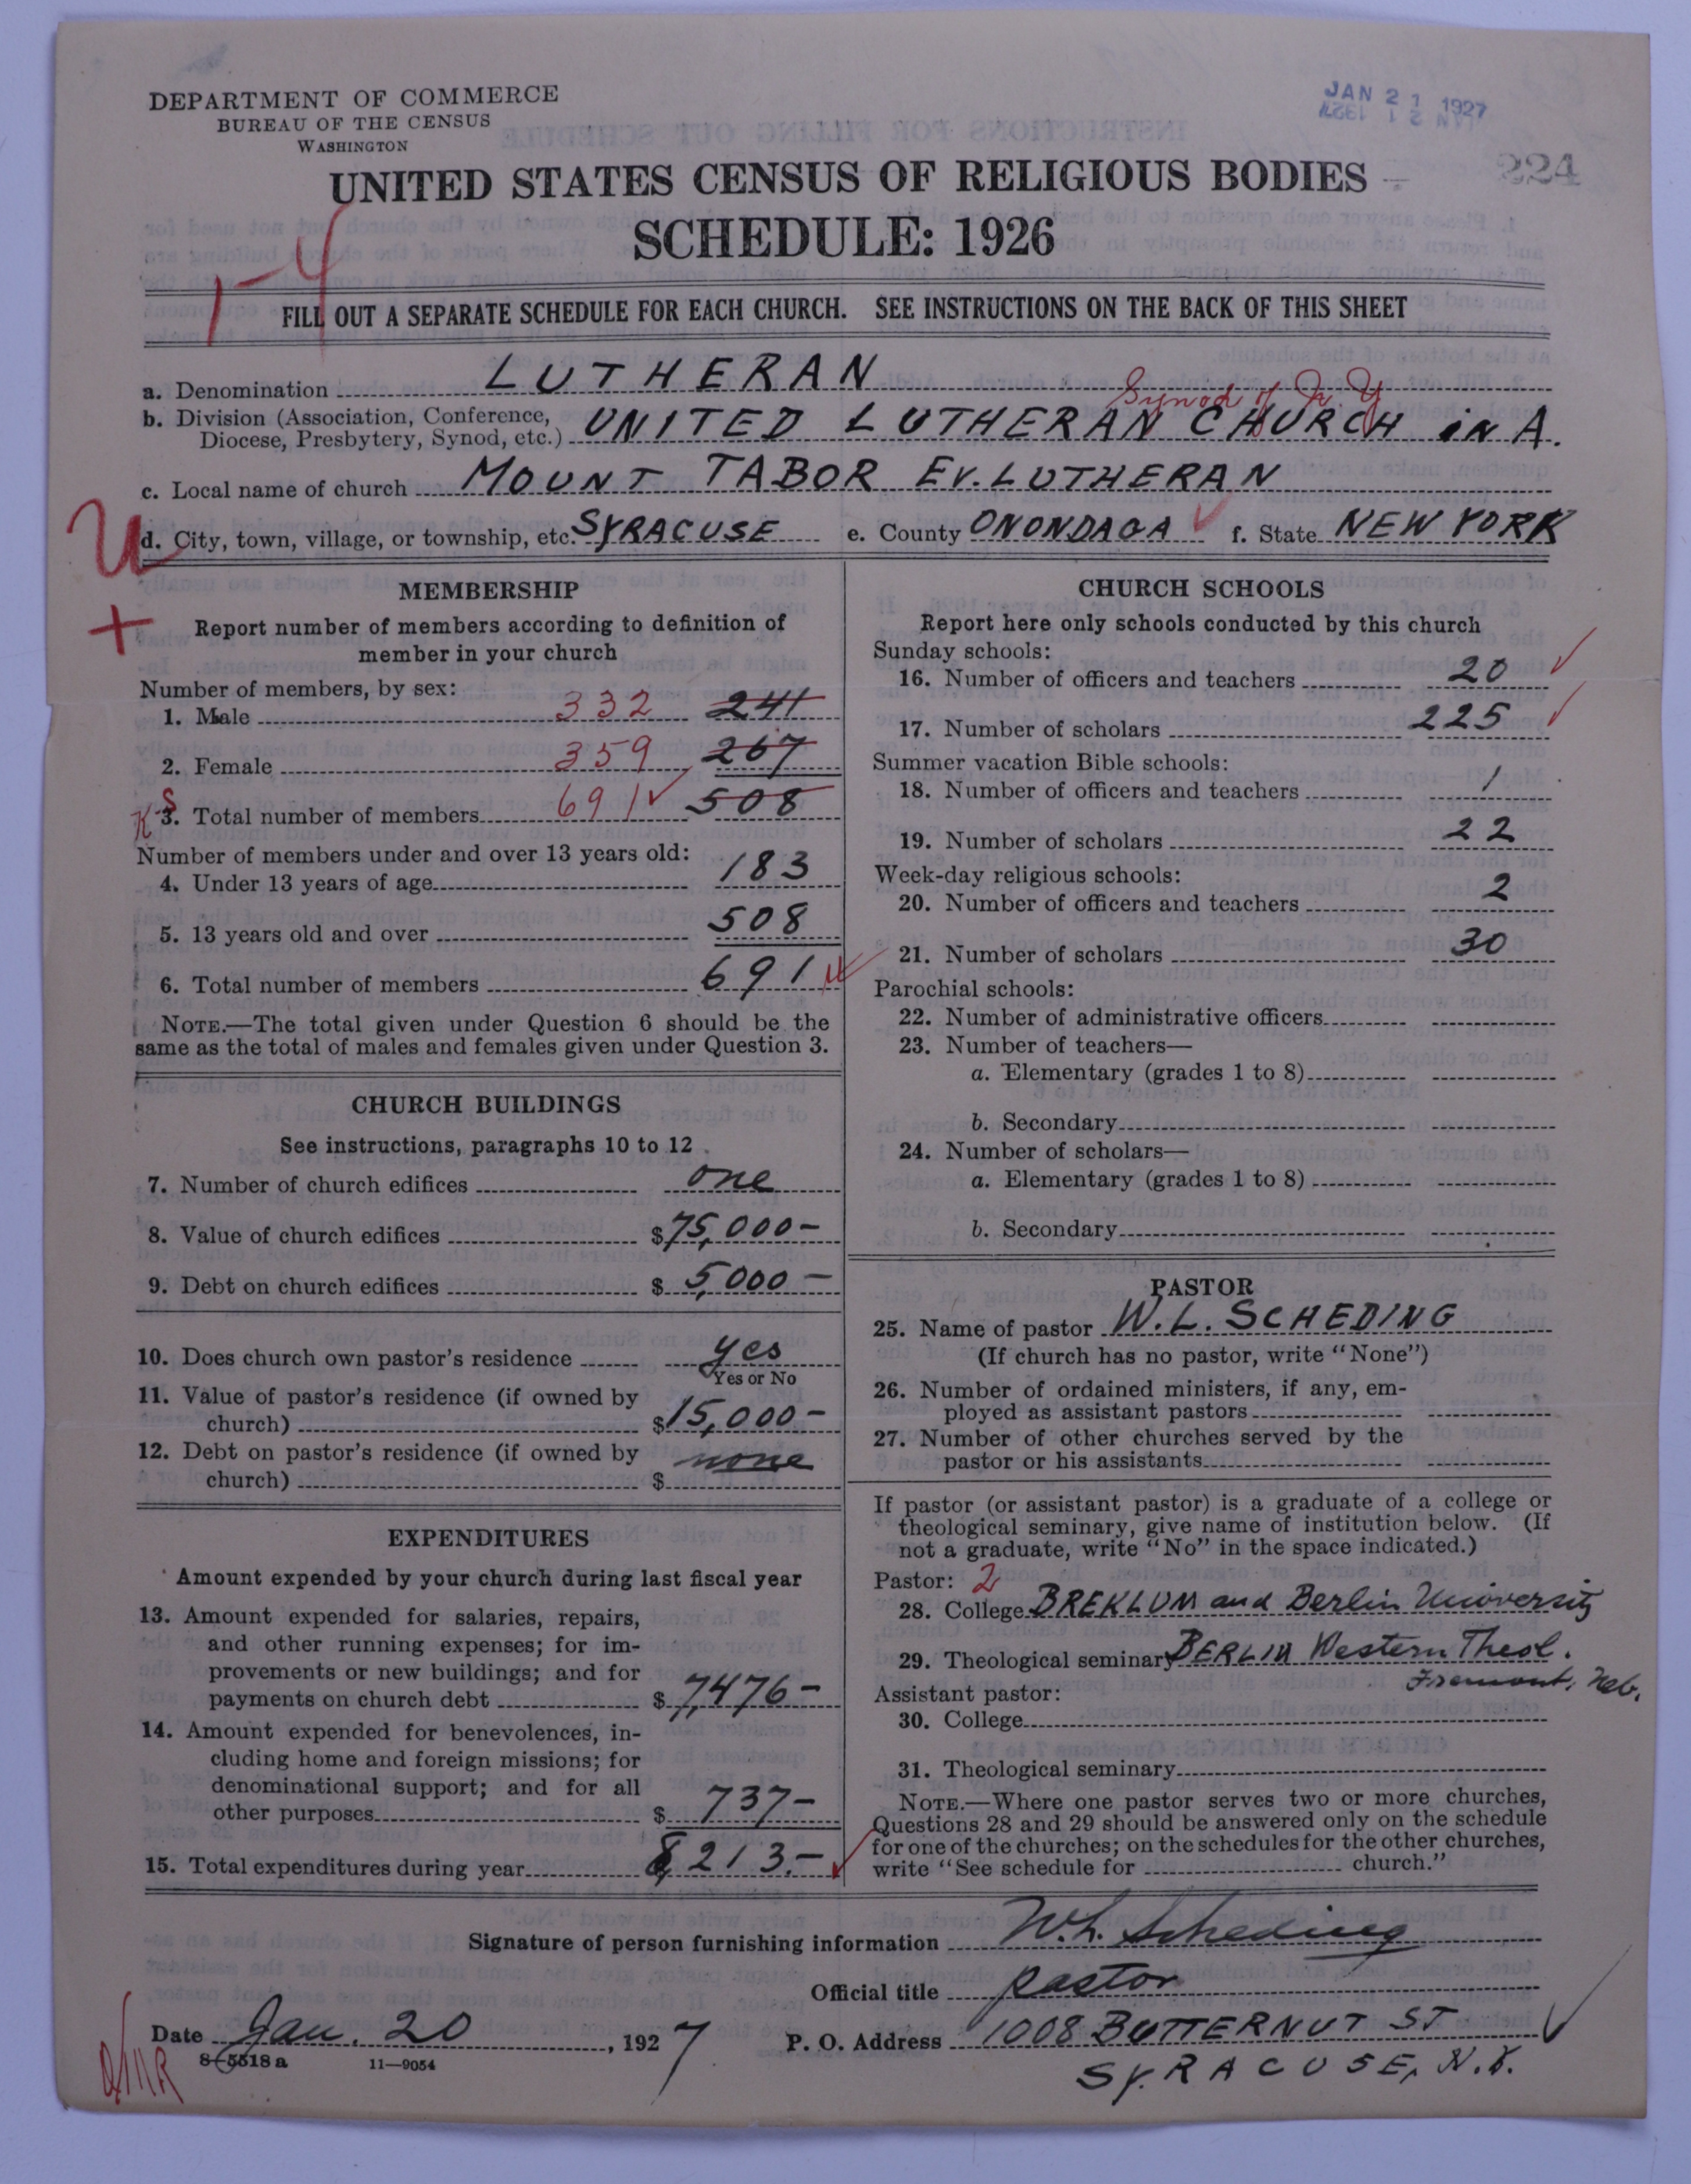 DEPARTMENT OF COMMERCE
BUREAU OF THE CENSUS
WASHINGTON
JAN 21 1927
224
UNITED STATES CENSUS OF RELIGIOUS BODIES
SCHEDULE: 1926
1-4
FILL OUT A SEPARATE SCHEDULE FOR EACH CHURCH. SEE INSTRUCTIONS ON THE BACK OF THIS SHEET
a. Denomination LUTHERAN
Synod of N. Y
b. Division (Association, Conference, Diocese, Presbytery, Synod, etc.) UNITED LUTHERAN CHURCH in A.
c. Local name of church MOUNT TABOR EV. LUTHERAN
U d. City, town, village, or township, etc. SYRACUSE e. County ONONDAGA ✓ f. State NEW YORK
+
MEMBERSHIP
Report number of members according to definition of
member in your church
Number of members, by sex:
1. Male 332 241
2. Female 359 267
KS 3. Total number of members 691 ✓ 508
Number of members under and over 13 years old:
4. Under 13 years of age 183
5. 13 years old and over 508
6. Total number of members 691
NOTE.—The total given under Question 6 should be the
same as the total of males and females given under Question 3.
CHURCH BUILDINGS
See instructions, paragraphs 10 to 12
7. Number of church edifices one
8. Value of church edifices $75,000-
9. Debt on church edifices $5,000-
10. Does church own pastor's residence yes
Yes or No
11. Value of pastor's residence (if owned by
church) $15,000-
12. Debt on pastor's residence (if owned by
church) $ none
EXPENDITURES
Amount expended by your church during last fiscal year
13. Amount expended for salaries, repairs,
and other running expenses; for im-
provements or new buildings; and for
payments on church debt $7,476-
14. Amount expended for benevolences, in-
cluding home and foreign missions; for
denominational support; and for all
other purposes $737-
15. Total expenditures during year 8,213.- ✓
CHURCH SCHOOLS
Report here only schools conducted by this church
Sunday schools:
16. Number of officers and teachers 20 ✓
17. Number of scholars 225 ✓
Summer vacation Bible schools:
18. Number of officers and teachers 1
19. Number of scholars 22
Week-day religious schools:
20. Number of officers and teachers 2
21. Number of scholars 30
Parochial schools:
22. Number of administrative officers
23. Number of teachers—
a. Elementary (grades 1 to 8)
b. Secondary
24. Number of scholars—
a. Elementary (grades 1 to 8)
b. Secondary
PASTOR
25. Name of pastor W. L. SCHEDING
(If church has no pastor, write "None")
26. Number of ordained ministers, if any, em-
ployed as assistant pastors
27. Number of other churches served by the
pastor or his assistants
If pastor (or assistant pastor) is a graduate of a college or
theological seminary, give name of institution below. (If
not a graduate, write "No" in the space indicated.)
Pastor: 2
28. College BREKLUM and Berlin University
29. Theological seminary BERLIN Western Theol.
Fremont, Neb.
Assistant pastor:
30. College
31. Theological seminary
NOTE.—Where one pastor serves two or more churches,
Questions 28 and 29 should be answered only on the schedule
for one of the churches; on the schedules for the other churches,
write "See schedule for church."
Signature of person furnishing information W. L. Scheding
Official title pastor
Date Jan. 20, 1927 P. O. Address 1008 BUTTERNUT ST. ✓
8-5518 a 11—9054
SYRACUSE, N.Y.